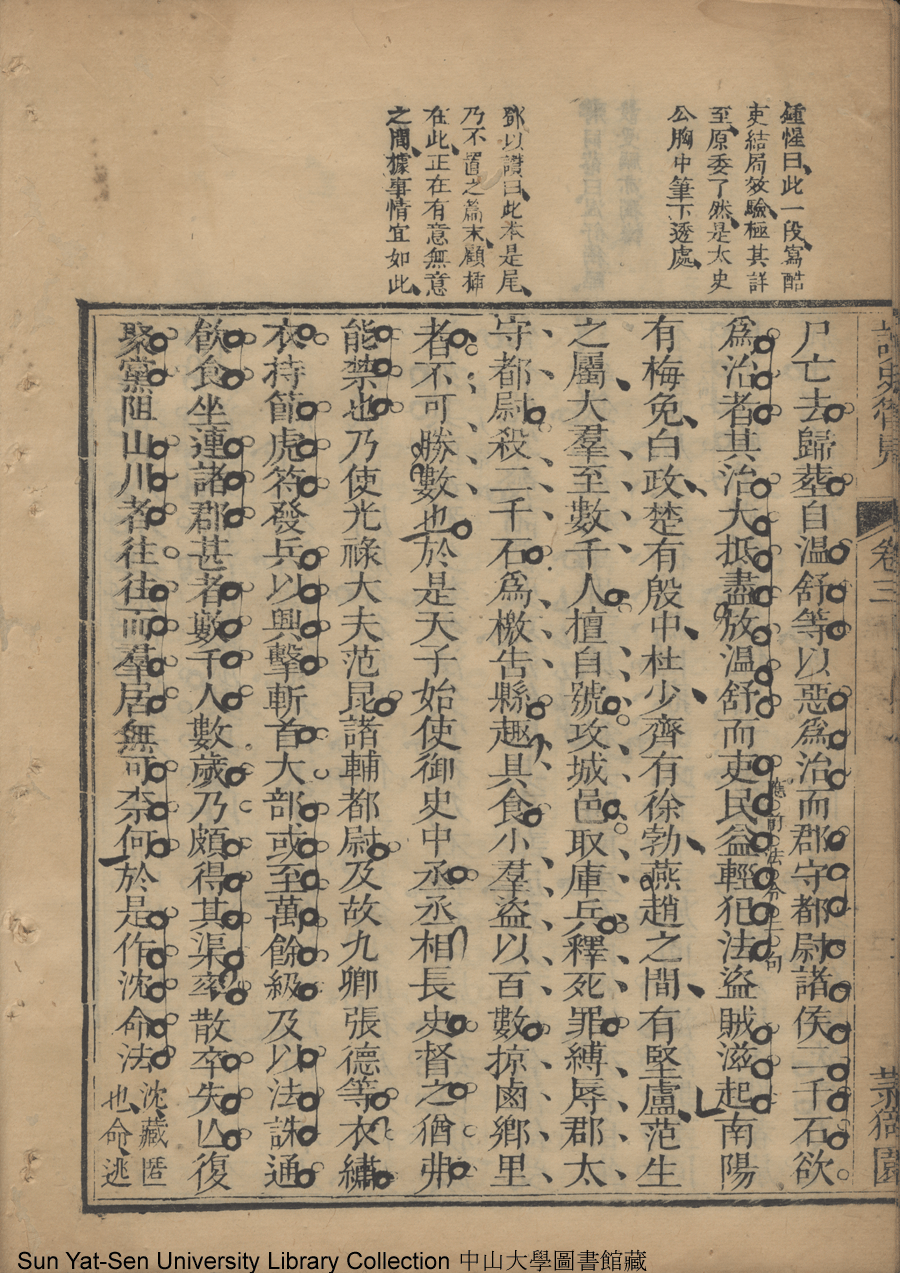 鍾惺曰此一段寫酷
吏結局效驗極其詳
至原委了然是太史
公胸中筆下透處
鄧以讚曰此本是尾
乃不置之篇末顧揷
在此正在有意無意
之間據事情宜如此
卷三
尸亡去歸葬自溫舒等以惡爲治而郡守都尉諸侯二千石欲
爲治者其治大抵盡放溫舒而吏民益輕犯法盜賊滋起南陽
應前法令二句
有梅免白政楚有殷中杜少齊有徐勃燕趙之間有堅盧范生
之屬大羣至數千人擅自號攻城邑取庫兵釋死罪縛辱郡太
守都尉殺二千石爲檄告縣趣具食小羣盜以百數掠鹵鄉里
者不可勝數也於是天子始使御史中丞丞相長史督之猶弗
能禁也乃使光祿大夫范昆諸輔都尉及故九卿張德等衣繡
衣持節虎符發兵以興擊斬首大部或至萬餘級及以法誅通
飮食坐連諸郡甚者數千人數歲乃頗得其渠率散卒失亾復
聚黨阻山川者往往而羣居無可柰何於是作沈命法沈藏匿
也命逃
Sun Yat-Sen University Library Collection 中山大學圖書館藏